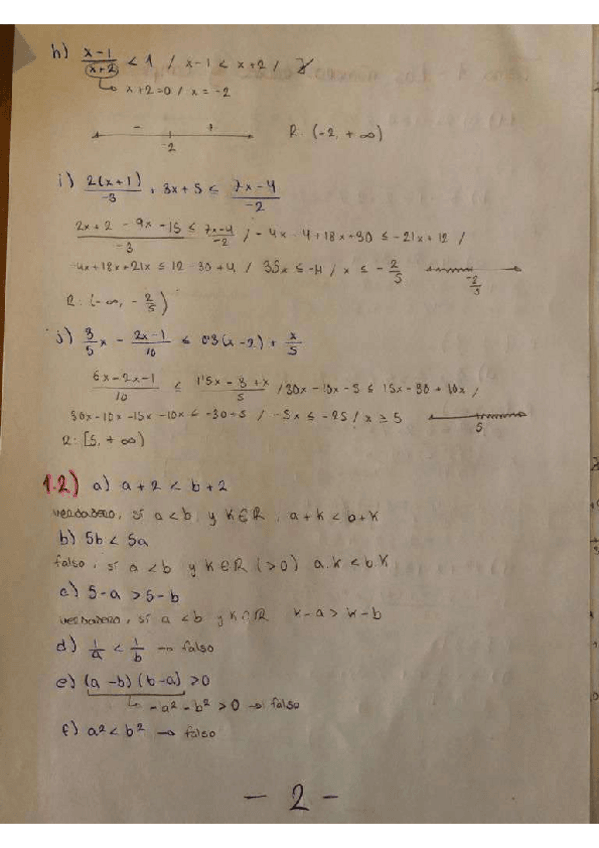 h) x-1/(x+2) < 1 / x-1 < x+2 /
x+2=0 / x = -2
- +
-2
R: (-2, +∞)
i) 2(x+1)/-3 + 3x+5 ≤ 7x-4/-2
2x+2-9x-15/-3 ≤ 7x-4/-2 ; -4x-4+18x+30 ≤ -21x+12 /
-4x+18x+21x ≤ 12-30+4 / 35x ≤ -14 / x ≤ -2/5
-2/5
R: (-∞, -2/5)
j) 3/5 x - 2x-1/10 ≤ 0'3(x-2) + x/5
6x-2x-1/10 ≤ 1'5x-3+x/5 / 30x-10x-5 ≤ 15x-30+10x /
30x-10x-15x-10x ≤ -30+5 / -5x ≤ -25 / x ≥ 5
5
R: [5, +∞)
1.2) a) a+2 < b+2
verdadero, si a<b y K∈R, a+K<b+K
b) 5b < 5a
falso, si a<b y K∈R (>0) a.K<bK
c) 5-a > 5-b
verdadero, si a<b y K∈R K-a > K-b
d) 1/a < 1/b → falso
e) (a-b)(b-a) >0
-a²-b² >0 → falso
f) a² < b² → falso
- 2 -